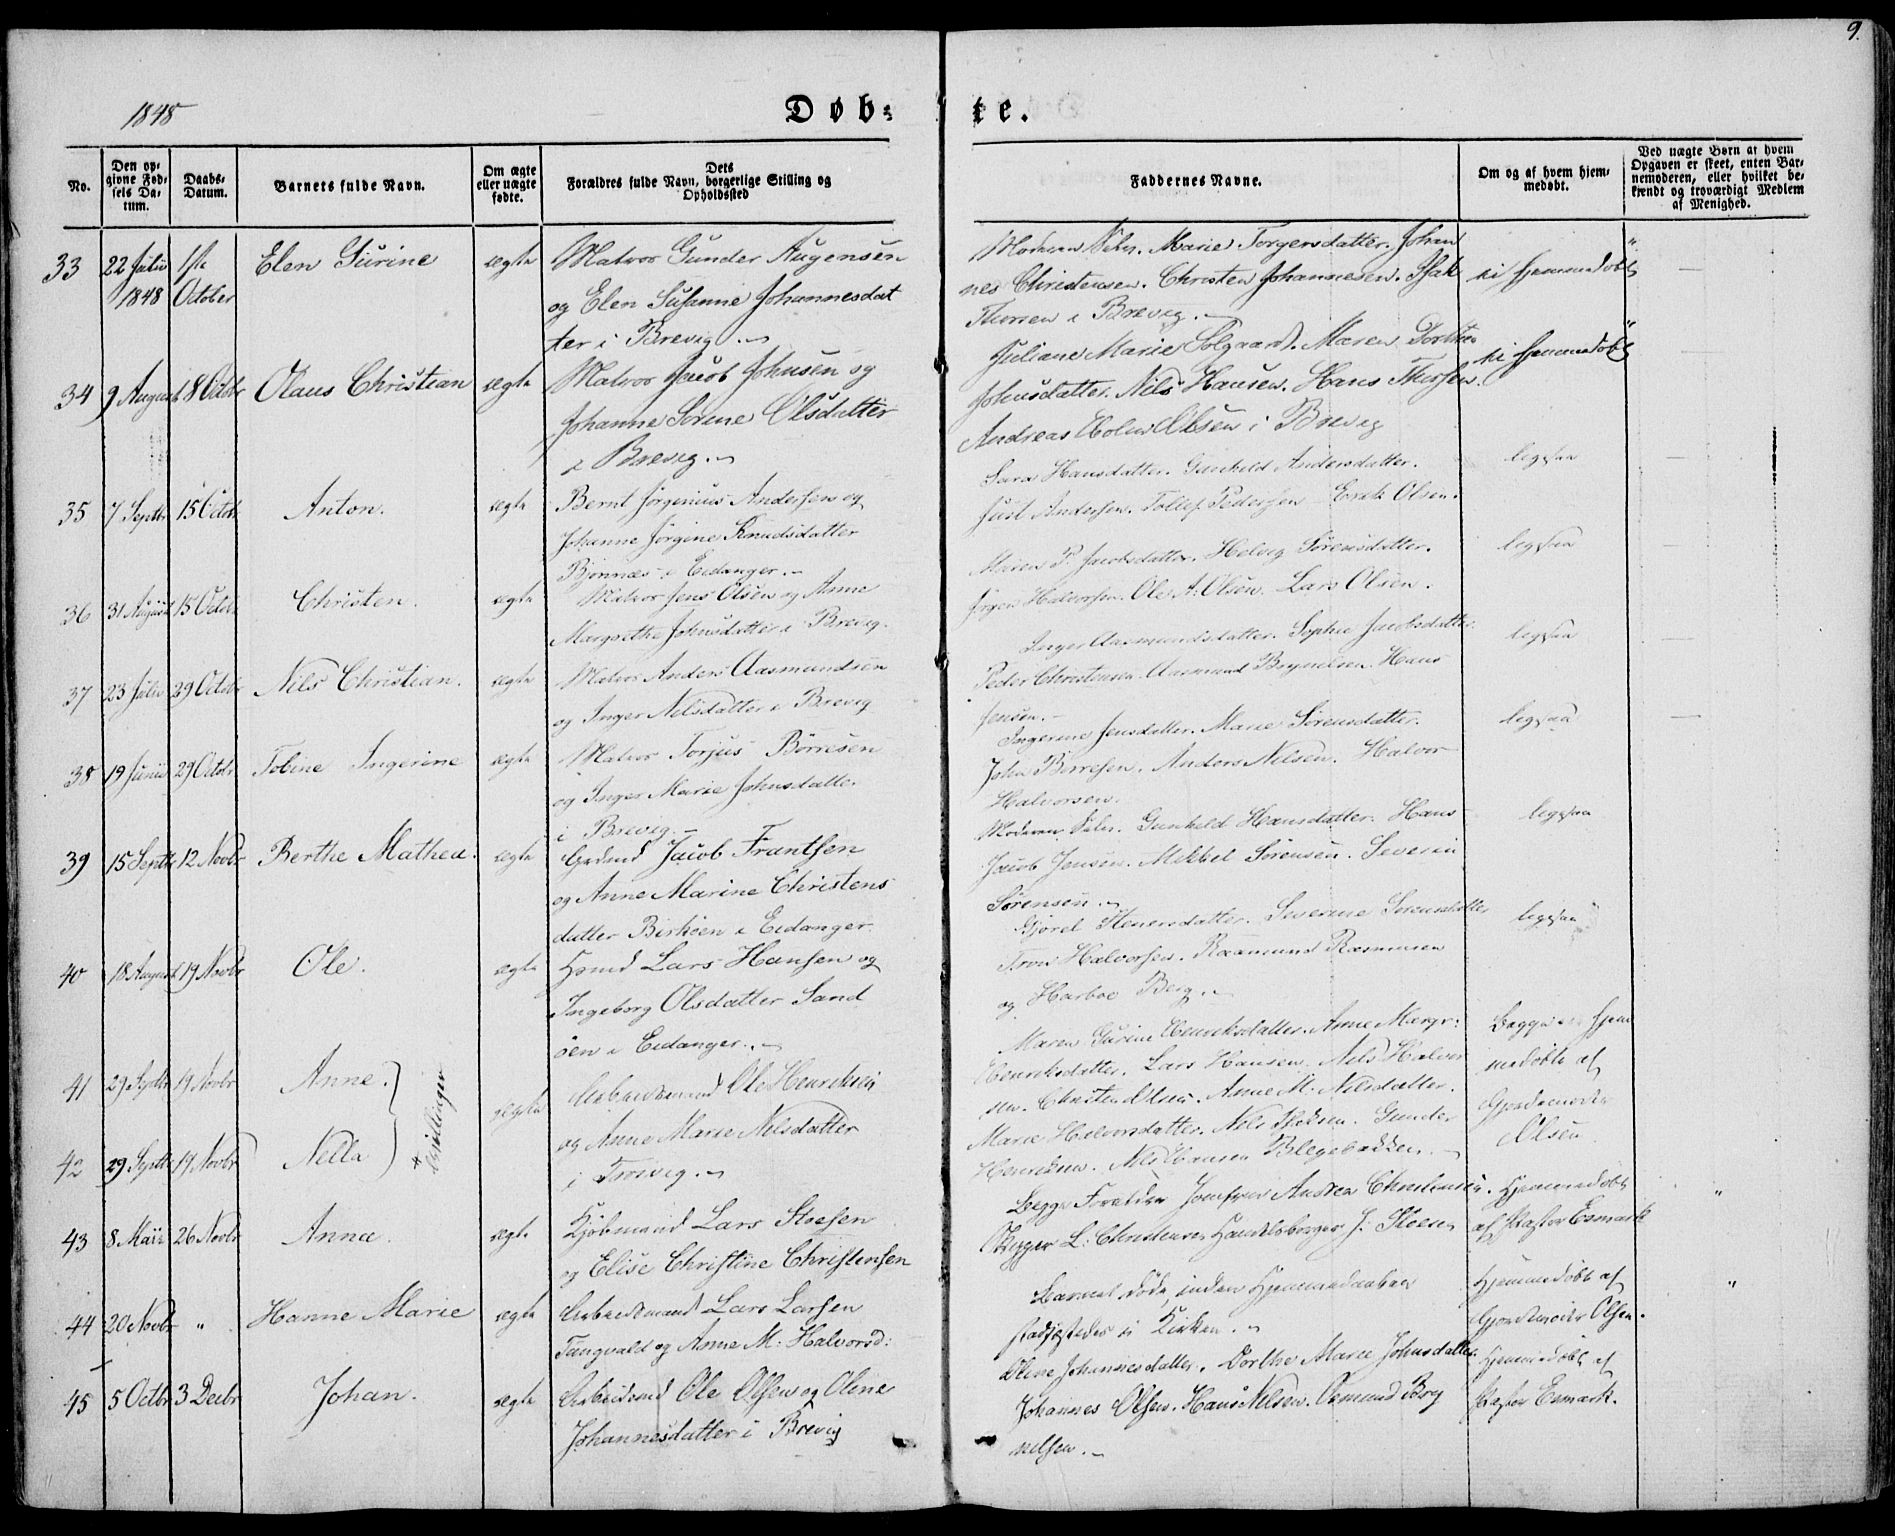 9.
1848
Døb= te.
No.
Den op=
givne Fød=
sels Da=
tum.
Daabs=
Datum.
Barnets fulde Navn.
Om ægte
eller uægte
fødte.
Dets
Forældres fulde Navn, borgerlige Stilling og
Opholdssted
Faddernes Navne.
Om og af hvem hjem=
medøbt.
Ved uægte Børn af hvem
Opgaven er skeet, enten Bar=
nemoderen, eller hvilket be=
kjendt og troværdigt Medlem
af Menighed.
33 22 Julii 1ste Elen Gurine ægte Matros Gunder Augensen
1848 October
og Elen Susanne Johannesdat
ter i Brevig.
Moderen Selv. Marie Torgersdatter. Johan
nes Christensen. Christen Johannesen. Isak
Thorsen i Brevig.
ei hjemmedøbt "
34 9 August 8 Octbr Olaus Christian ægte Matros Jacob Johnsen og
Johanne Sorine Olsdatter
i Brevig.
Juliane Marie Solgaard. Maren Dorthea
Johnsdatter. Nils Hansen. Hans Thorsen.
Andreas Holm Olsen i Brevig
ei hjemmedøbt "
35 7 Septbr 15 Octob Anton. ægte Bernt Jørgenius Andersen og
Johanne Jørgine Knudsdatter
Bjønnæs i Eidanger.
Sara Hansdatter. Gunhild Andersdatter.
Just Andersen. Tollef Pedersen Erik Olsen.
legesaa
36 31 August 15 Octob Christen. ægte Matros Jens Olsen og Anne
Margrethe Johnsdatter i Brevig.
Maren P. Jacobsdatter. Helvig Sørensdatter.
Jørgen Halvorsen. Ole A. Olsen. Lars Olsen.
legesaa
37 23 Julii 29 Octobr Nils Christian. ægte Matros Anders Aasmundsen
og Inger Nilsdatter i Brevig
Inger Aasmundsdatter. Sophie Jacobsdatter
Peder Christensen Aasmund Brynelsen Hans
Jensen.
legesaa
38 19 Junii 29 Octobr Tobine Ingerine ægte Matros Torjus Børresen
og Inger Marie Johnsdatter
i Brevig.
Ingerine Jensdatter. Marie Sørensdatter.
John Børresen. Anders Nilsen. Halvor
Halvorsen.
legesaa
39 15 Septb 12 Novbr Berthe Mathea. ægte Grdmd Jacob Frantsen
og Anne Marine Christens
datter Birkøen i Eidanger.
Moderen Selv. Gunhild Hansdatter. Hans
Jacob Jensen. Mikkel Sørensen. Severin
Sørensen.
legesaa
40 18 August 19 Novbr Ole. ægte Hsmd Lars Hansen og
Ingeborg Olsdatter Sand
øen i Eidanger.
Gjørel Stenersdatter. Severine Sørensdatter
Halvorsen. Rasmussen
og Harboe Berg.
legesaa
41 29 Septbr 19 Novbr Anne. ægte Arbeidsmand Ole Henriksen
42 29 Septb 19 Novbr Nella
* Tvillinger
og Anne Marie Nilsdatter
i Trosvig.
Maren Gurine Henriksdatter. Anne Margr:
Henriksdatter. Lars Hansen. Nils Halvor
sen. Christen Olsen. Anne M. Nilsdatter.
Marie Halvorsdatter. Nils Isaksen. Gunder
Henriksen. Nils Hansen Blegebakken.
Begge hjem
medøbte af
Gjordemoder
Olsen
43 8 Marz 26 Novbr Anna. ægte Kjøbmand Lars Stoesen
og Elise Christine Christensen
Begge Forældre Jomfrue Andrea Christensen.
L. Christensen Handelsborger J. Stoesen
Hjemmedøbt
af Pastor Esmark
"
44 20 Novbr " Hanne Marie ægte Arbeidsmand Lars Larsen
Tangvald og Anne M: Halvorsd:
Barnet døde, inden Hjemmedaaben
stadfæstedes i Kirken.
Hjemmedøbt af
Gjordemoder Olsen.
"
45 5 Octbr 3 Decbr Johan. ægte Arbeidsmd Ole Olsen og Oline
Johannesdatter i Brevig
Oline Johannesdatter. Dorthe Marie Johnsdatter
Johannes Olsen. Hans Nilsen. Osmund Bry
nelsen.
Hjemmedøbt af
Pastor Esmark.